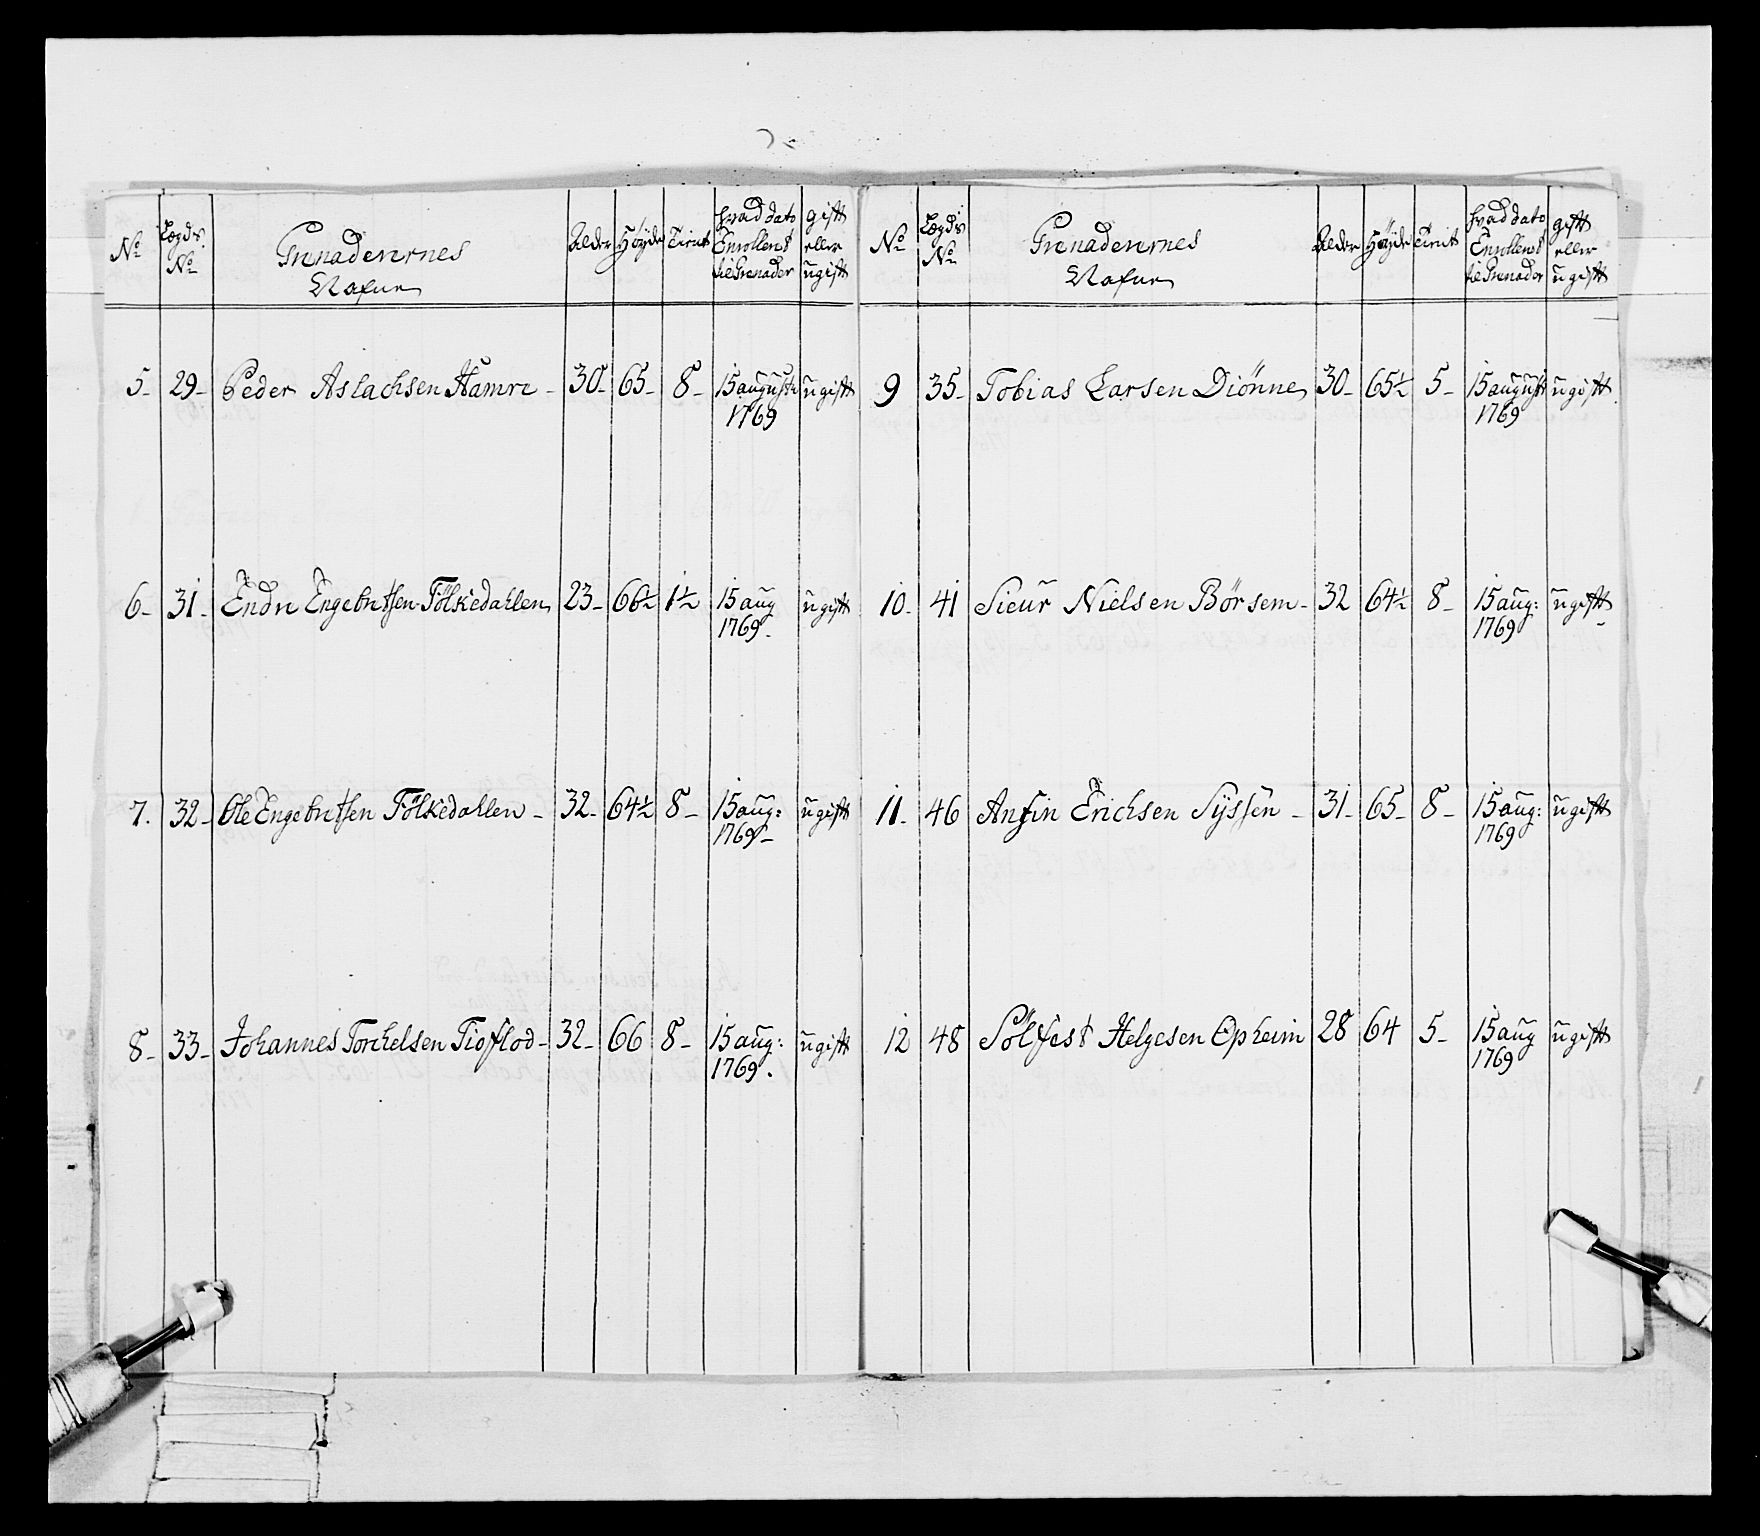 No
Lægds No
Grenaderernes Nafne
Alder
Høyde
Tient
hvad dato Enrollert til Grenader
gift eller ugift
5- 29- Peder Aslachsen Hamre - 30- 65- 8- 15 augusti ugift
1769
6- 31- Endre Engebretsen Fölkedahlen 23- 66½ 1½ 15 aug ugift
1769-
7. 32- Ole Engebretsen Fölkedahlen - 32- 64½ 8- 15 aug: ugift
1769-
8- 33- Johannes Torchelsen Tioflod- 32- 66 8- 15 aug: ugift
1769.
No
Lægds No
Grenaderernes Nafne
Alder
Høyde
Tient
hvad dato Enrollert til Grenader
gift eller ugift
9 35- Tobias Larsen Diönne 30- 65½ 5- 15 august ugift
1769
10- 41 Sieur Nielsen Börsem- 32 64½ 8- 15 aug: ugift-
1769
11- 46 Anfin Erichsen Sÿssen - 31- 65- 8- 15 aug: ugift
1769
12 48 Sölfest Helgesen Opheim 28 64 5- 15 aug ugift
1769